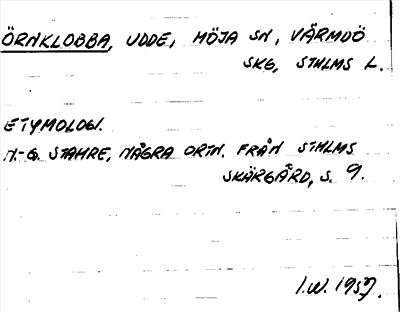 ÖRNKLOBBA, UDDE, MÖJA SN, VÄRMDÖ
SKG, STHLMS L.
ETYMOLOGI.
N.-G. STAHRE, NÅGRA ORTN. FRÅN STHLMS
SKÄRGÅRD, S. 9.
I.W. 1957.